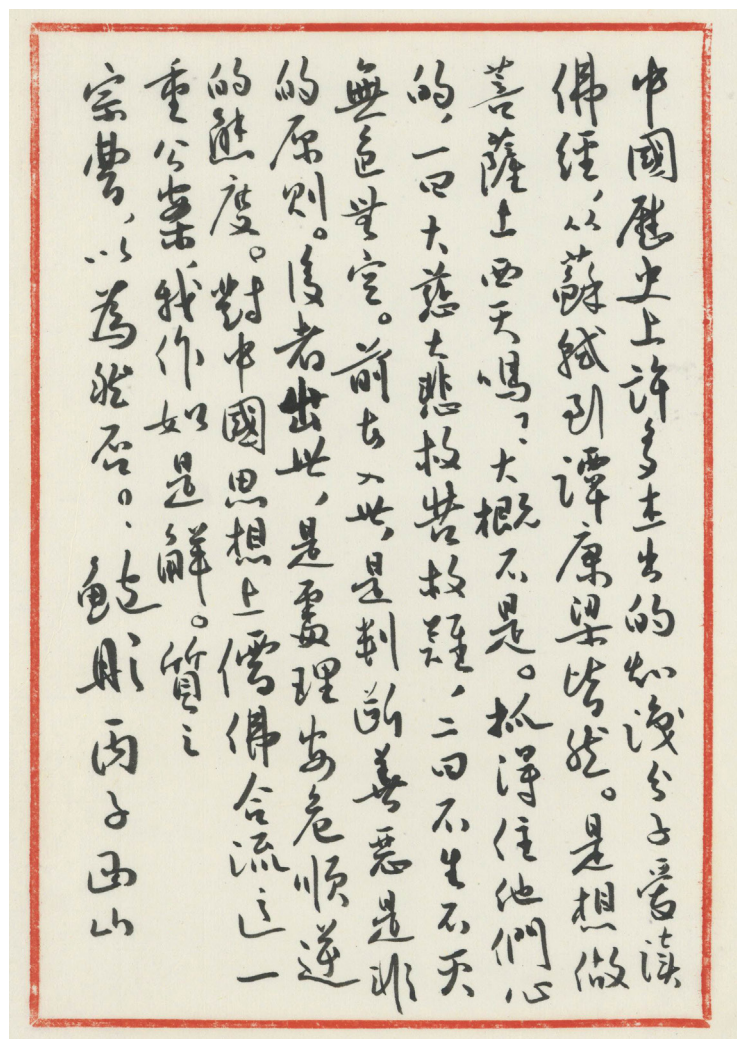 中國歷史上許多杰出的知識分子愛讀
佛經，从蘇軾到譚康梁皆然。是想做
菩薩上西天嗎？大概不是。抓得住他們心
的，一曰大慈大悲救苦救難，二曰不生不灭
無色無空。前者入世，是判斷善惡是非
的原则。後者出世，是處理安危順逆
的態度。對中國思想上儒佛合流這一
重公案，我作如是解。質之
宗曹，以為然否？ 彤 丙子西山